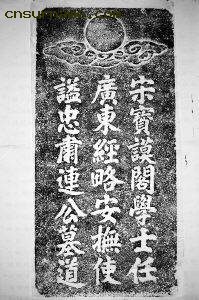 宋寶謨閣學士任
廣東經略安撫使
謚忠肅連公墓道